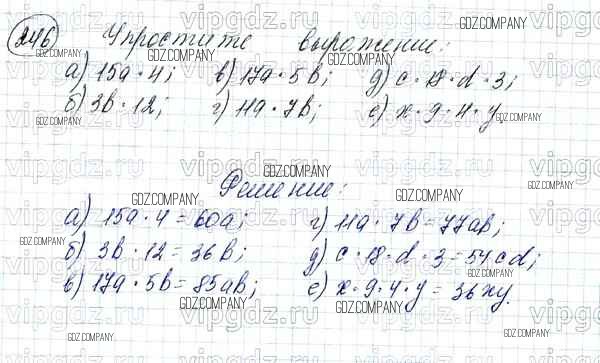 246 Упростите выражение:
а) 15a · 4; в) 17a · 5b; д) c · 18 · d · 3;
б) 3b · 12; г) 11a · 7b; е) x · 9 · 4 · y.
Решение:
а) 15a · 4 = 60a; г) 11a · 7b = 77ab;
б) 3b · 12 = 36b; д) c · 18 · d · 3 = 54cd;
в) 17a · 5b = 85ab; е) x · 9 · 4 · y = 36xy.
GDZ.COMPANY
vipgdz.ru